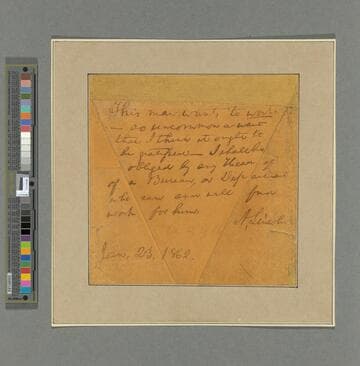 This man wants to work
— so uncommon a want
that I think it ought to
be gratified — I shall be
obliged by any Head of
of a Bureau, or Department
who can and will find
work for him
A. Lincoln
Jan. 23. 1862.